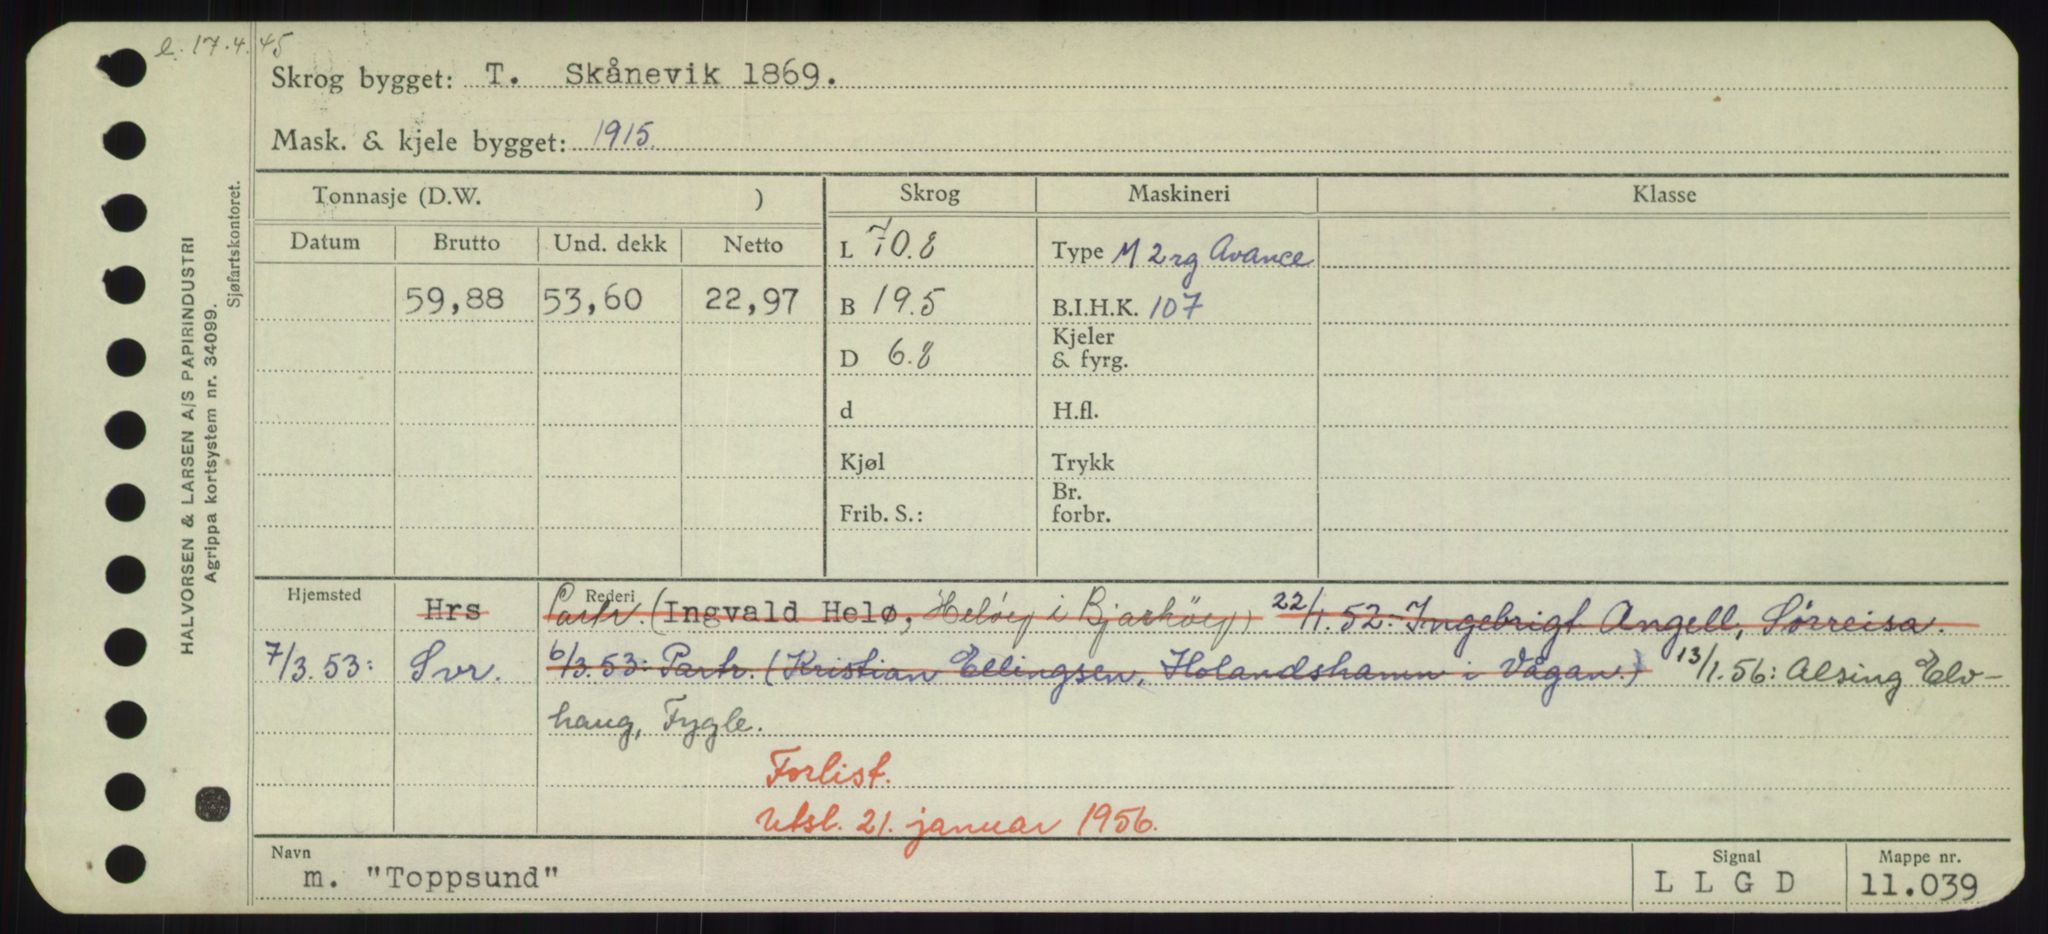 e. 17.4.45
Skrog bygget: T. Skånevik 1869.
Mask. & kjele bygget: 1915.
HALVORSEN & LARSEN A/S PAPIRINDUSTRI
Agrippa kortsystem nr. 34099.
Sjøfartskontoret.
Tonnasje (D.W. ) Skrog Maskineri Klasse
Datum Brutto Und. dekk Netto
L 70.8 Type M 2 rg Avance
59,88 53,60 22,97 B 19.5 B.I.H.K. 107
D 6.8 Kjeler
& fyrg.
d H.fl.
Kjøl Trykk
Frib. S.: Br.
forbr.
Hjemsted Rederi
Hrs Partr. (Ingvald Helø, Helöy i Bjarköy) 22/1.52: Ingebrigt Angell, Sørreisa.
7/3.53: Svr. 6/3.53: Partr. (Kristian Ellingsen, Holandshamn i Vågan.) 13/1.56: Alsing Elv-
haug, Fygle.
Forlist.
Utsl. 21. januar 1956.
Navn Signal Mappe nr.
m. "Toppsund" L L G D 11.039